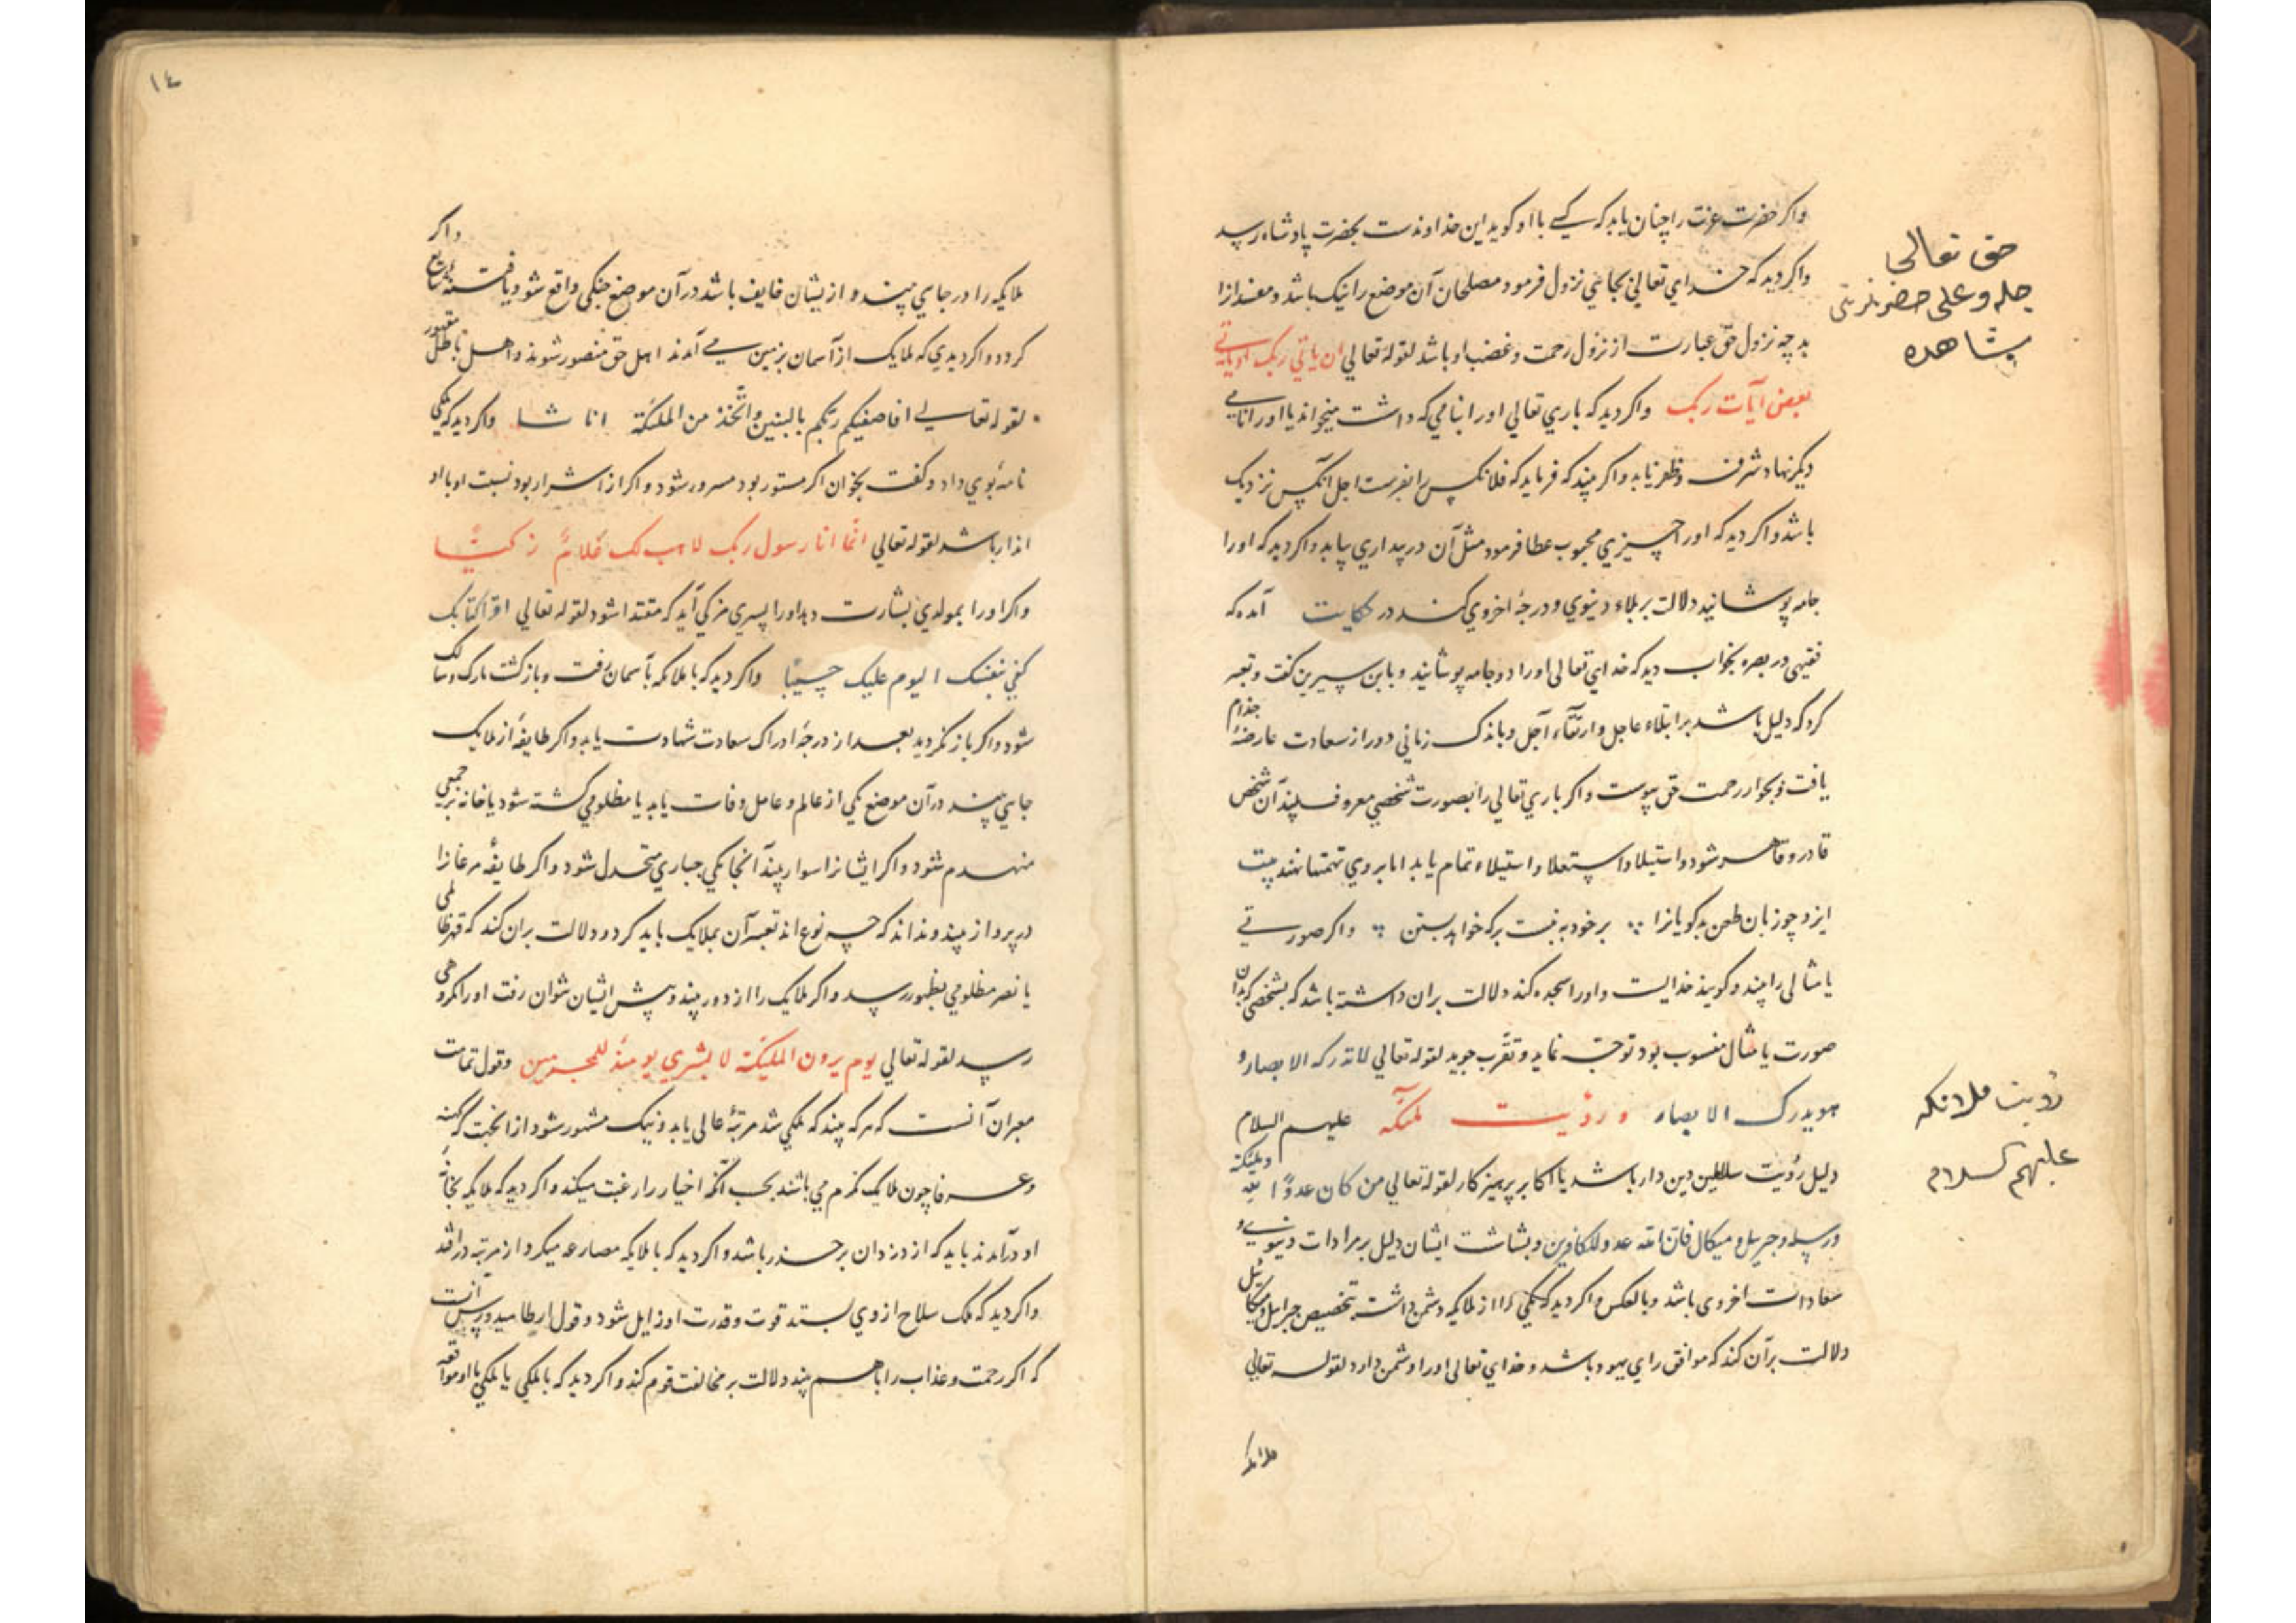 واکر حضرت عزت را چنان یابد که کسی با او کوید این خداوندست بحضرت پادشاه رسد
واکر دید که خدای تعالی بجایی نزول فرمود مصلحان آن موضع را نیک باشد و مفسدانرا
بد چه نزول حق عبارت از نزول رحمت و غضب او باشد لقوله تعالی ان یاتی ربک او یاتی
بعض آیات ربک واکر دید که باری تعالی او را بنامی که داشت میخواند یا او را نامی
دیکر نهاد شرف و ظفر یابد واکر بیند که فرماید که فلانکس را بفرست اجل آنکس نزدیک
باشد واکر دید که او را چیزی محبوب عطا فرمود مثل آن در بیداری بیابد واکر دید که او را
جامه پوشانید دلالت بر بلاء دنیوی و درجهٔ اخروی کند در حکایت آمده که
فقیهی در بصره بخواب دید که خدای تعالی او را دو جامه پوشانید و بابن سیرین کفت و تعبیر
کرد که دلیل باشد بر ابتلاء عاجل و ارتقاء آجل و باندک زمانی دور از سعادت عارضهٔ جذام
یافت و بجوار رحمت حق پیوست واکر باری تعالی را بصورت شخصی معروف بیند آن شخص
قادر و قاهر شود و استیلا و استعلا و استیلاء تمام یابد اما بر وی تهمتها نهند بیت
ایزد چو زبان طعن بدکویانرا بر خود نه ببست بر که خواهد بستن واکر صورتی
یا مثالی را بیند و کویند خدایست و او را سجده کند دلالت بران داشته باشد که بشخصی که بدان
صورت یا مثال منسوب بود توجه نماید و تقرب جوید لقوله تعالی لا تدرکه الابصار و
هو یدرک الابصار و رؤیت ملئکه علیهم السلام
دلیل رؤیت سلاطین دین دار باشد یا اکابر پرهیز کار لقوله تعالی من کان عدوًا لله و ملئکته
و رسله و جبریل و میکال فان الله عدو للکافرین و بشاشت ایشان دلیل بر مرادات دنیوی و
سعادات اخروی باشد و بالعکس واکر دید که یکی را از ملایکه دشمن داشت بتخصیص جبرایل و میکائیل
دلالت بر آن کند که موافق رای یهود باشد و خدای تعالی او را دشمن دارد لقوله تعالی
حق تعالی
جله و علی حضرتلرینی
مشاهده
رؤیت ملائکه
علیهم السلام
١٤
واکر
ملایکه را در جایی بیند و از یشان خایف باشد در آن موضع جنکی واقع شود یا فتنهٔ شایع
کردد واکر دیدی که ملایک از آسمان بزمین می آمدند اهل حق منصور شوند و اهل باطل مقهور
لقوله تعالی افاصفیکم ربکم بالبنین واتخذ من الملئکة اناثا واکر دید که ملکی
نامهٔ بوی داد و کفت بخوان اکر مستور بود مسرور شود واکر از اشرار بود نسبت او با او
انذار باشد لقوله تعالی انما انا رسول ربک لاهب لک غلاماً زکیّاً
واکر او را بمولودی بشارت دهد او را پسری مزکی آید که مقتدا شود لقوله تعالی اقرا کتابک
کفی بنفسک الیوم علیک حسیبًا واکر دید که با ملایکه بآسمان رفت و باز کشت تارک و سالک
شود واکر باز نکردید بعد از درجهٔ ادراک سعادت شهادت یابد واکر طایفهٔ از ملایک
جایی بیند در آن موضع یکی از عالم و عامل وفات یابد یا مظلومی کشته شود یا خانه بر جمعی
منهدم شود واکر ایشانرا سوار بیند آنجا یکی جباری متخذل شود واکر طایفهٔ مرغانرا
در پرواز بیند و نداند که چه نوع اند تعبیر آن بملایک باید کرد و دلالت بران کند که قهر ظالمی
یا نصر مظلومی بظهور رسد واکر ملایک را از دور بیند و پیش ایشان نتوان رفت او را مکروهی
رسد لقوله تعالی یوم یرون الملئکة لا بشری یومئذ للمجرمین و قول تمامت
معبران آنست که هر که بیند که ملکی شد مرتبهٔ عالی یابد و نیک مشهور شود
و عرفا چون ملایک مکرم می باشند بحسب آنکه اخیار را رغبت میکند واکر دید که ملایکه بخانهٔ
او در آمدند باید که از دزدان بر حذر باشد واکر دید که با ملایکه مصارعه میکرد از مرتبه در افتد
واکر دید که ملک سلاح از وی بستد قوت و قدرت او زایل شود و قول ارطامیدورس آنست
که اکر رحمت و عذاب را باهم بیند دلالت بر مخالفت قوم کند واکر دید که با ملکی یا ملکی با او مواقعه